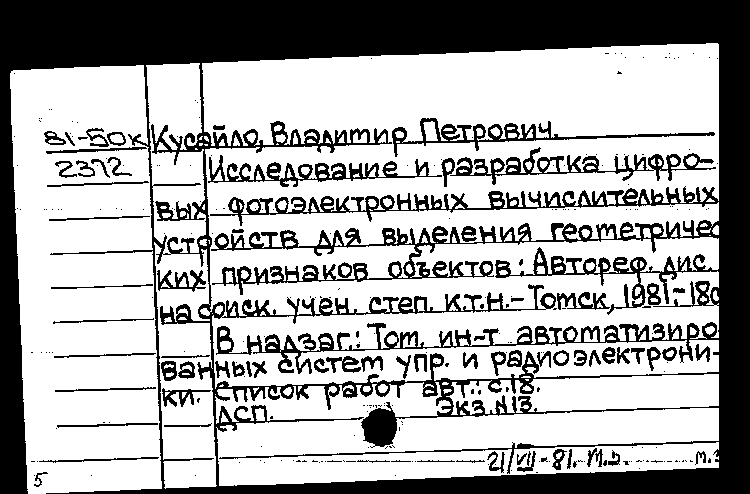 81-50к Кусайло, Владимир Петрович.
2372 Исследование и разработка цифро-
вых фотоэлектронных вычислительных
устройств для выделения геометричес
ких признаков объектов: Автореф. дис.
на соиск. учен. степ. к.т.н.-Томск, 1981.-18с
В надзаг.: Том. ин-т автоматизиро
ванных систем упр. и радиоэлектрони-
ки. Список работ авт.: с.18.
ДСП. Экз. N13.
21/VII-81. М.
5